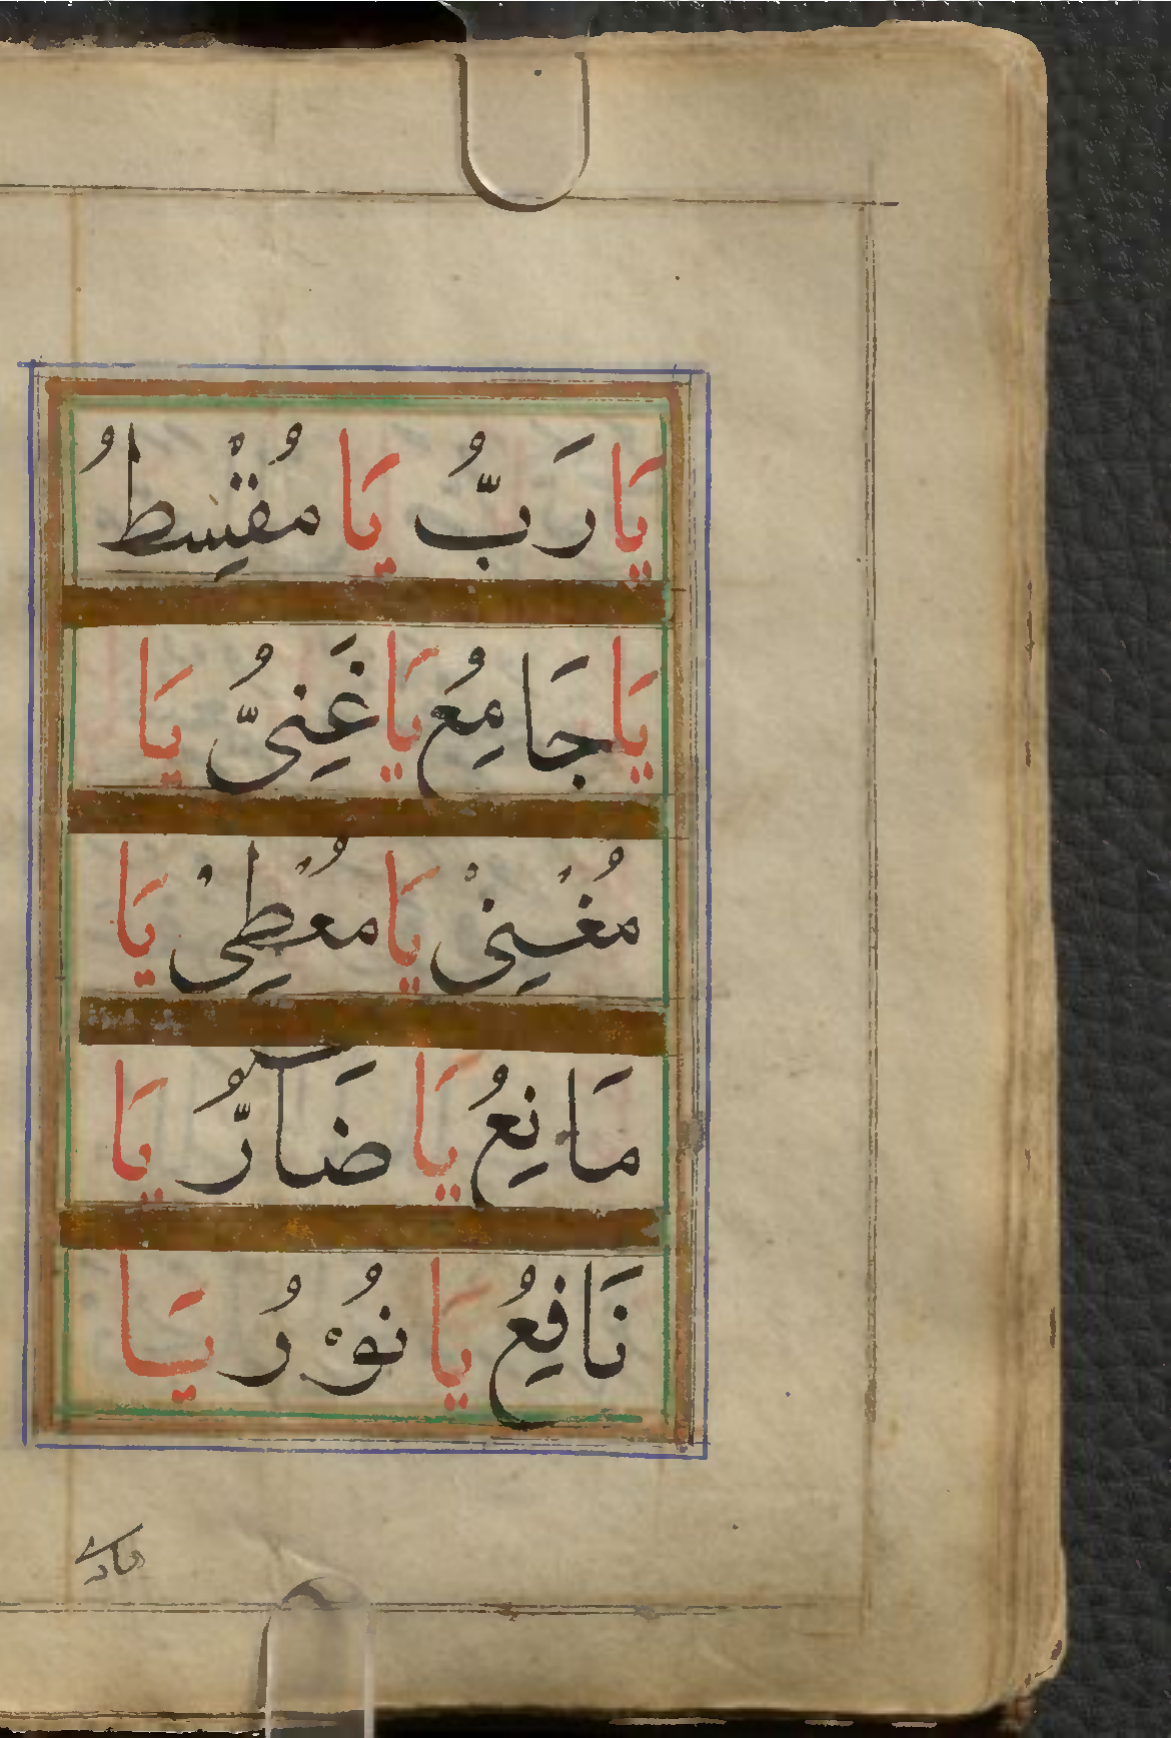 يَا رَبُّ يَا مُقْسِطُ
يَا جَامِعُ يَا غَنِيُّ يَا
مُغْنِيْ يَا مُعْطِيْ يَا
مَانِعُ يَا ضَآرُّ يَا
نَافِعُ يَا نُوْرُ يَا
هادے